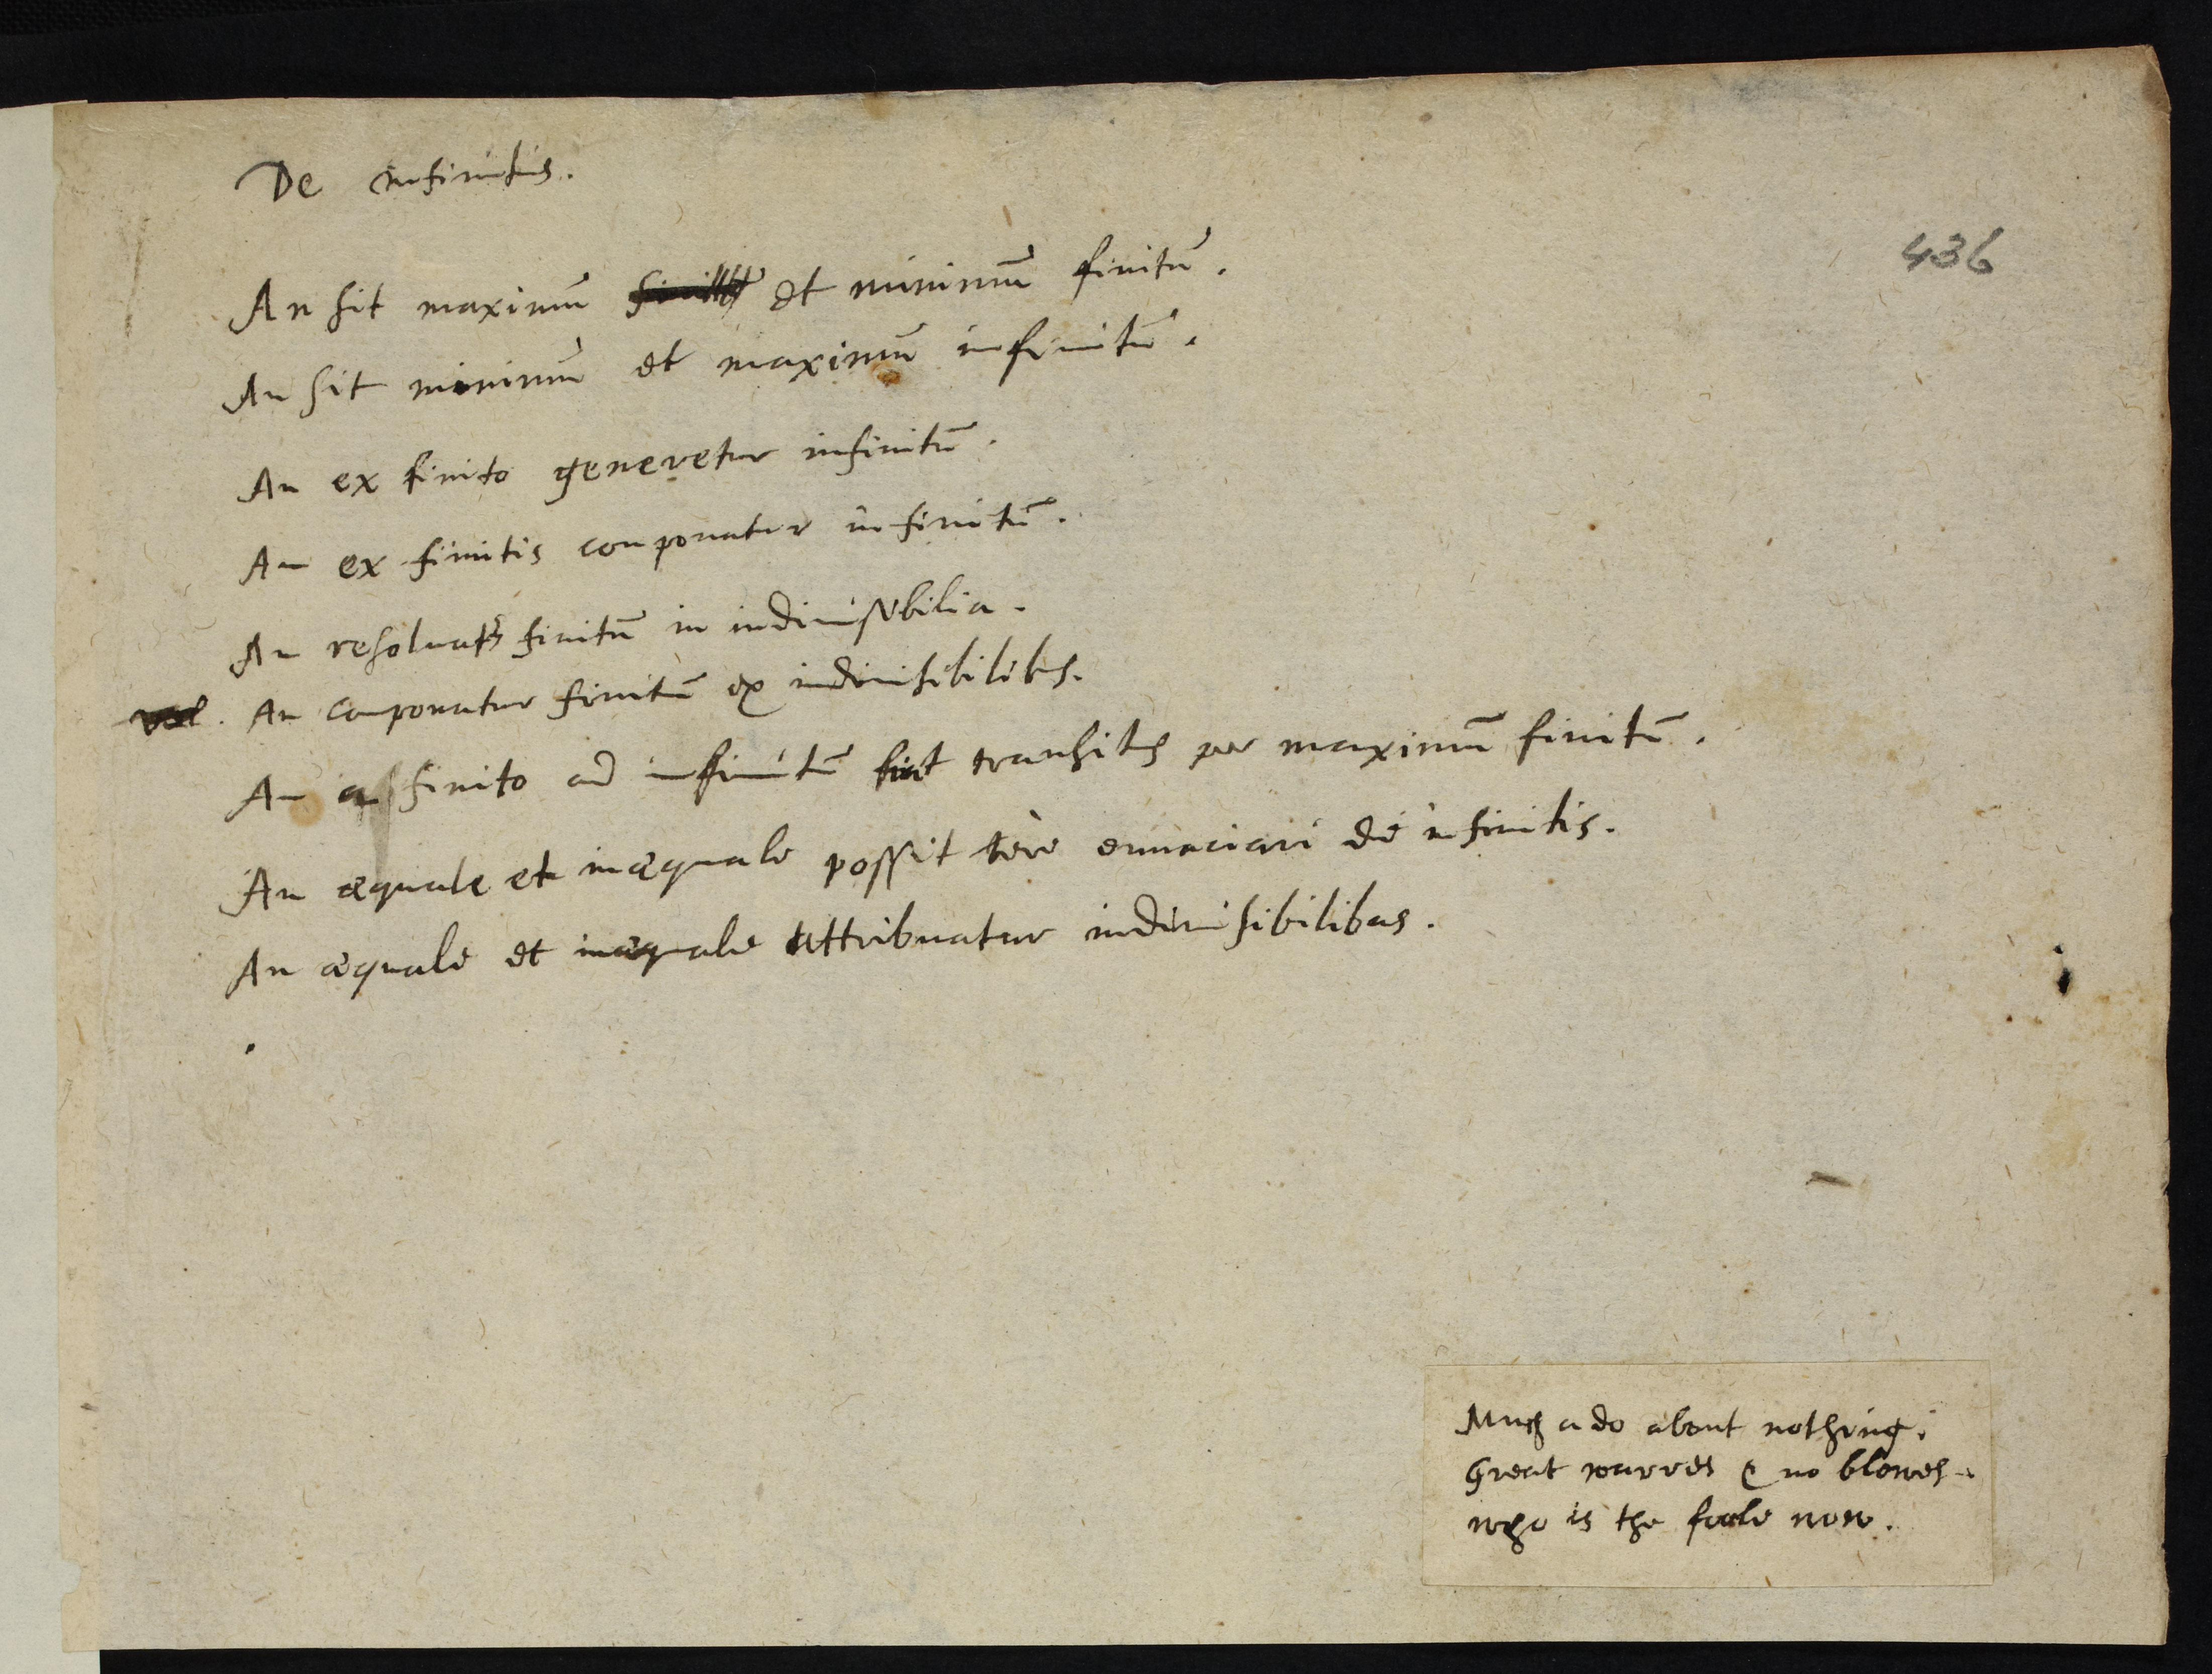 De infinitis.
436
An sit maximū et minimū finitū.
An sit minimū et maximū infinitū.
An ex finito generetur infinitū.
An ex finitis componatur infinitū.
An resoluat finitū in indiuisibilia.
vel. An componatur finitū ex indiuisibilibus.
An a finito ad infinitū fiat transitus per maximū finitū.
An æquale et inæquale possit vere ennunciari de infinitis.
An æquale et inæquale attribuatur indiuisibilibus.
Much ado about nothing.
Great warres & no blowes.
who is the foole now.